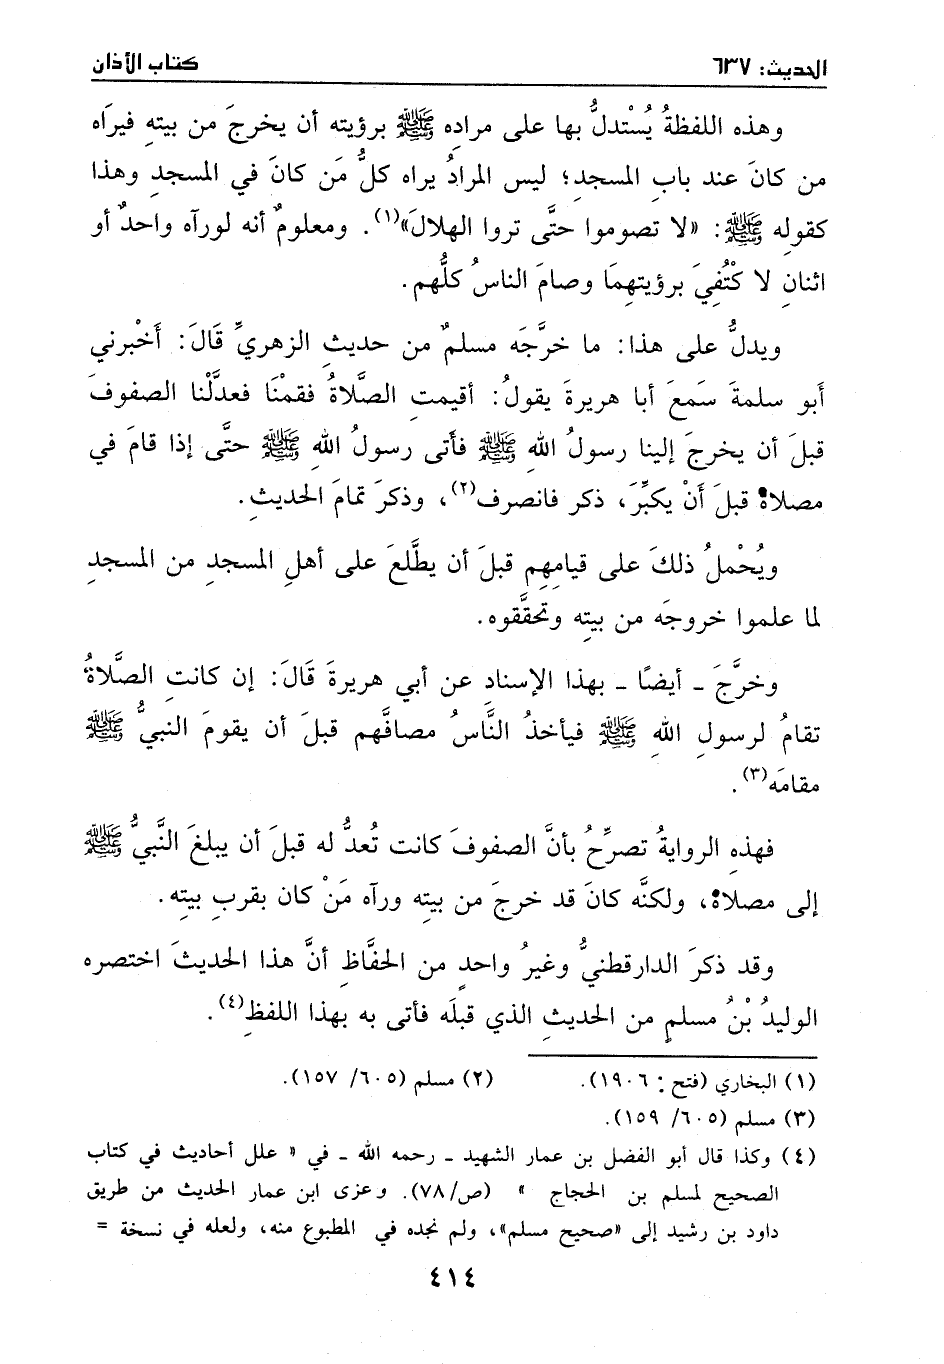 الحديث: ٦٣٧
كتاب الأذان
وهذه اللفظةُ يُسْتدلُّ بها على مرادِه ﷺ برؤيته أن يخرجَ من بيتهِ فيرَاه
من كانَ عند بابِ المسجدِ؛ ليس المرادُ يراه كلُّ مَن كانَ في المسجدِ وهذا
كقولِه ﷺ: «لا تصوموا حتَّى تروا الهلالَ»(١). ومعلومٌ أنه لورآه واحدٌ أو
اثنانِ لا كْتُفِيَ برؤيتهِمَا وصامَ الناسُ كلُّهم.
ويدلُّ على هذا: ما خرَّجَه مسلمٌ من حديثِ الزهريِّ قَالَ: أَخْبرني
أَبو سلمةَ سَمَعَ أبا هريرةَ يقولُ: أقيمتِ الصَّلاةُ فقمْنَا فعدلَّنا الصفوفَ
قبلَ أن يخرجَ إلينا رسولُ اللهِ ﷺ فأَتى رسولُ اللهِ ﷺ حتَّى إذا قامَ في
مصلاهُ قبلَ أَنْ يكبِّرَ، ذكر فانصرف(٢)، وذكرَ تمامَ الحديثِ.
ويُحْملُ ذلكَ على قيامِهم قبلَ أن يطَّلعَ على أهلِ المسجدِ من المسجدِ
لما علموا خروجَه من بيتِه وتحقَّقوه.
وخرَّجَ ـ أيضًا ـ بهذا الإسنادِ عن أبي هريرةَ قَالَ: إن كانتِ الصَّلاةُ
تقامُ لرسولِ اللهِ ﷺ فيأخذُ النَّاسُ مصافَّهم قبلَ أن يقومَ النبيُّ ﷺ
مقامَه(٣).
فهذِه الروايةُ تصرِّحُ بأنَّ الصفوفَ كانت تُعدُّ له قبلَ أن يبلغَ النَّبيُّ ﷺ
إلى مصلاهُ، ولكنَّه كانَ قد خرجَ من بيتِه ورآه مَنْ كان بقربِ بيتِه.
وقد ذكرَ الدارقطنيُّ وغيرُ واحدٍ من الحفَّاظِ أنَّ هذا الحديثَ اختصره
الوليدُ بْنُ مسلمٍ من الحديثِ الذي قبلَه فأتى به بهذا اللفظِ(٤).
(١) البخاري (فتح: ١٩٠٦). (٢) مسلم (٦٠٥/ ١٥٧).
(٣) مسلم (٦٠٥/ ١٥٩).
(٤) وكذا قال أبو الفضل بن عمار الشهيد ـ رحمه الله ـ في « علل أحاديث في كتاب
الصحيح لمسلم بن الحجاج » (ص/٧٨). وعزى ابن عمار الحديث من طريق
داود بن رشيد إلى «صحيح مسلم»، ولم نجده في المطبوع منه، ولعله في نسخة =
٤١٤